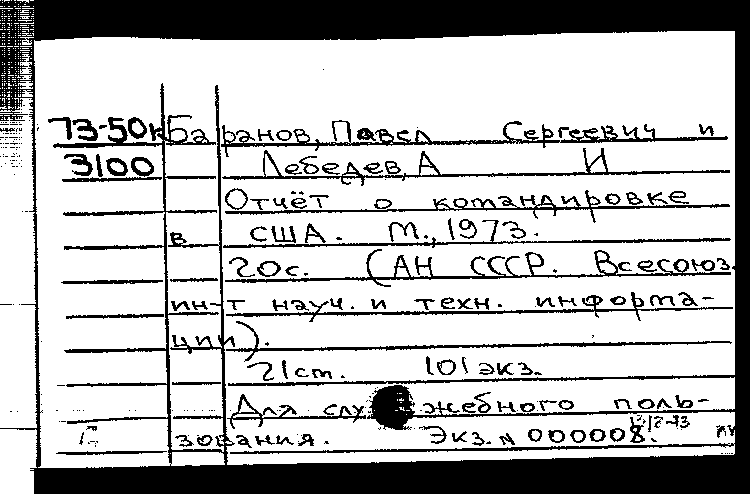 73-50к Баранов, Павел Сергеевич и
3100 Лебедев, А И
Отчёт о командировке
в США. М., 1973.
20с. (АН СССР. Всесоюз.
ин-т науч. и техн. информа-
ции).
21см. 101 экз.
Для служебного поль-
зования. Экз. N 000008.